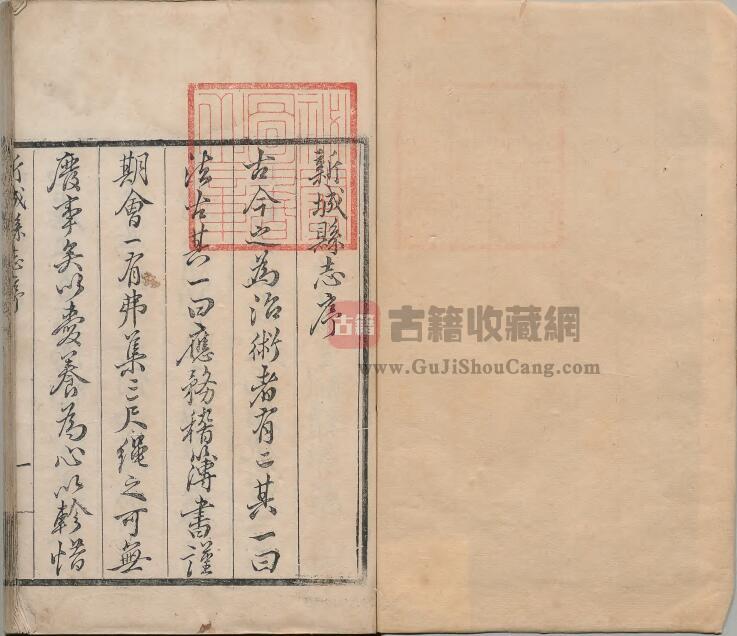 新城縣志序
古今之為治術者有二其一曰
法古其一曰應務稽簿書謹
期會一有弗集三尺繩之可無
廢事矣以愛養為心以軫惜
新城縣志序
一
古籍
古籍收藏網
www.GuJiShouCang.com